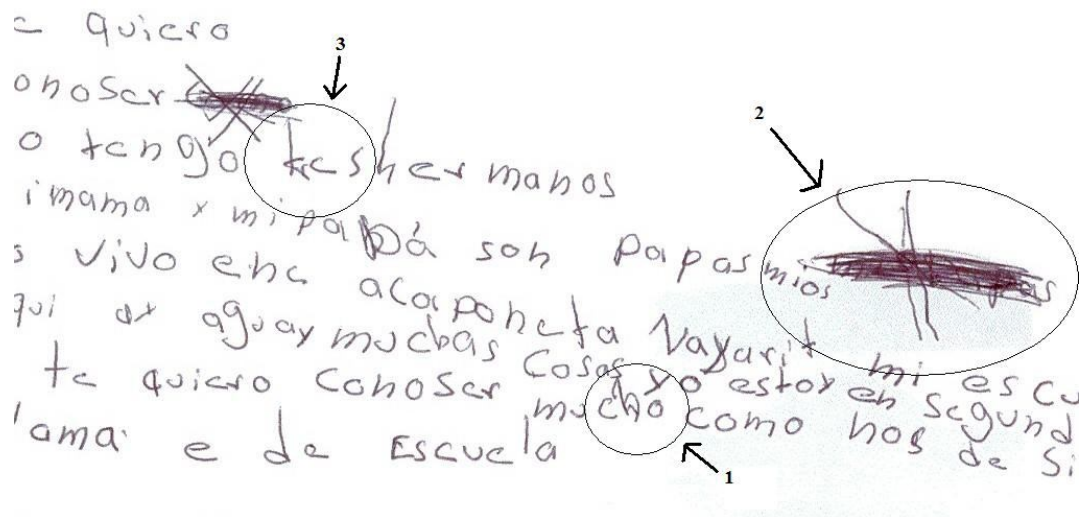 e quiero
onoser
3
o tengo tres hermanos
2
imama x mi papá son papas mios
s vivo ene acaponeta Nayarit mi escu
qui ay aguay muchas cosas yo estoy en segund
te quiero conoser mucho como nos de si
lama e de Escuela
1